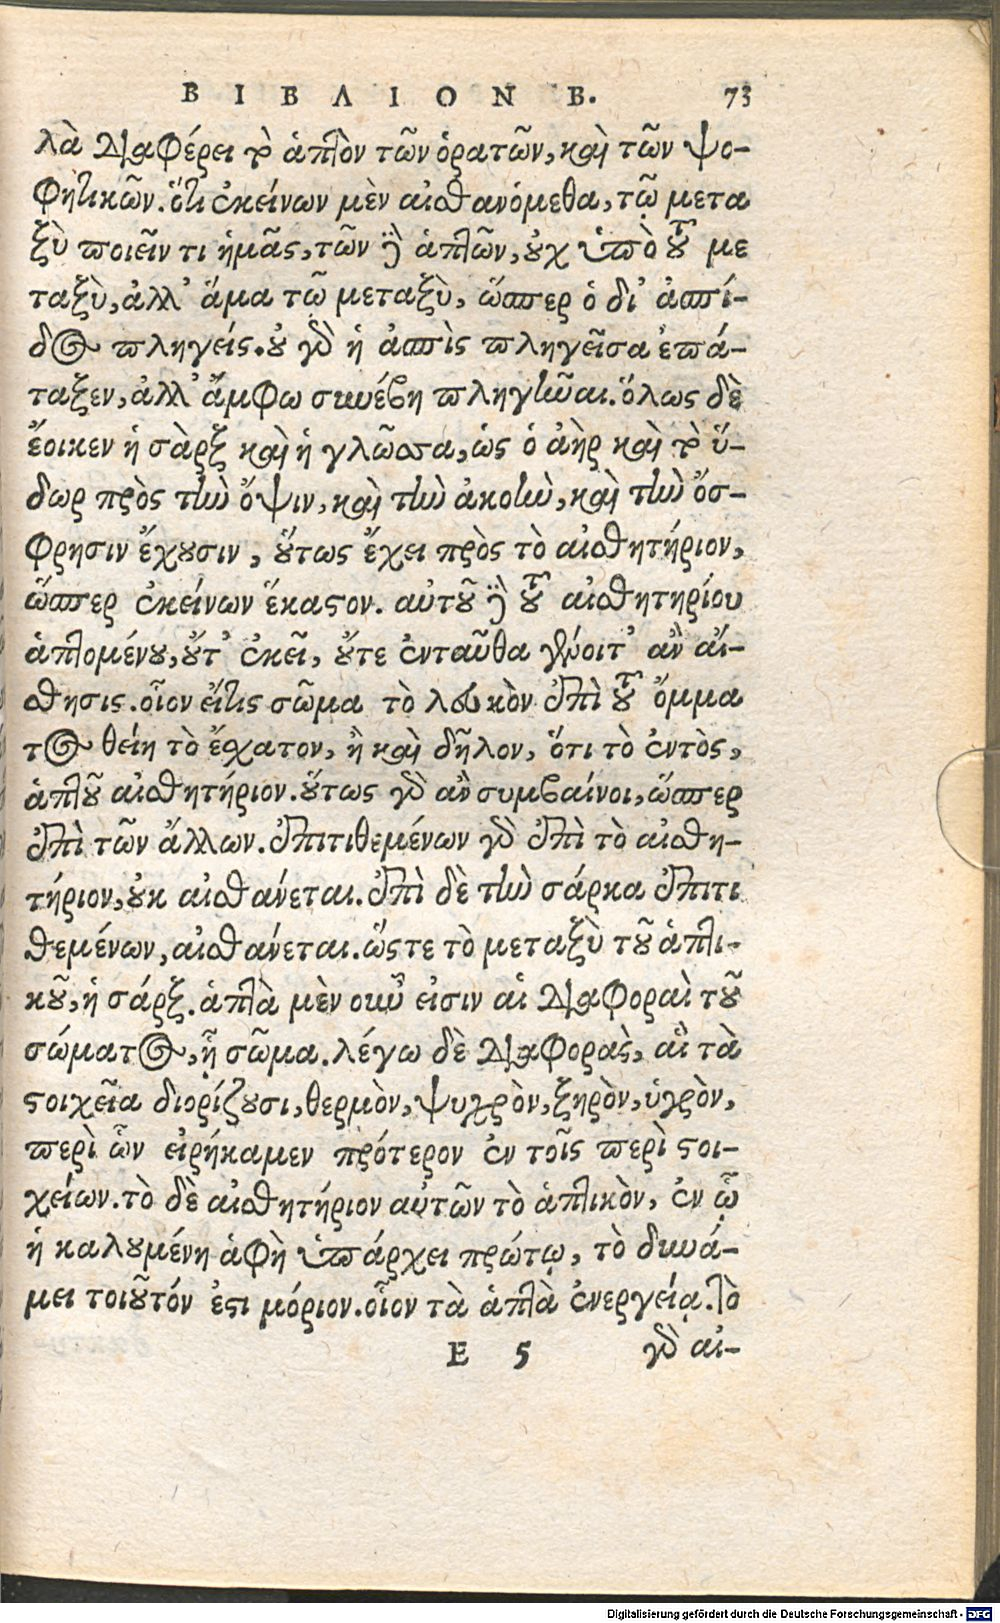 ΒΙΒΛΙΟΝ Β. 73
λὰ διαφέρει τὸ ἁπτὸν τῶν ὁρατῶν, καὶ τῶν ψο-
φητικῶν. ὅτι ἐκείνων μὲν αἰσθανόμεθα, τῷ μετα
ξὺ ποιεῖν τι ἡμᾶς, τῶν δὲ ἁπτῶν, οὐχ ὑπὸ τοῦ με
ταξὺ, ἀλλ' ἅμα τῷ μεταξὺ, ὥσπερ ὁ δι' ἀσπί-
δος πληγείς. οὐ γὰρ ἡ ἀσπὶς πληγεῖσα ἐπά-
ταξεν, ἀλλ' ἄμφω συνέβη πληγῆναι. ὅλως δὲ
ἔοικεν ἡ σὰρξ καὶ ἡ γλῶσσα, ὡς ὁ ἀὴρ καὶ τὸ ὕ-
δωρ πρὸς τὴν ὄψιν, καὶ τὴν ἀκοὴν, καὶ τὴν ὄσ-
φρησιν ἔχουσιν, οὕτως ἔχει πρὸς τὸ αἰσθητήριον,
ὥσπερ ἐκείνων ἕκαστον. αὐτοῦ δὲ τοῦ αἰσθητηρίου
ἁπτομένου, οὔτ' ἐκεῖ, οὔτε ἐνταῦθα γένοιτ' ἂν αἴ-
σθησις. οἷον εἴ τις σῶμα τὸ λευκὸν ἐπὶ τοῦ ὄμμα
τος θείη τὸ ἔσχατον, ἢ καὶ δῆλον, ὅτι τὸ ἐντὸς,
ἁπτοῦ αἰσθητήριον. οὕτως γὰρ ἂν συμβαίνοι, ὥσπερ
ἐπὶ τῶν ἄλλων. ἐπιτιθεμένων γὰρ ἐπὶ τὸ αἰσθη-
τήριον, οὐκ αἰσθάνεται. ἐπὶ δὲ τὴν σάρκα ἐπιτι
θεμένων, αἰσθάνεται. ὥστε τὸ μεταξὺ τοῦ ἁπτι-
κοῦ, ἡ σάρξ. ἁπταὶ μὲν οὖν εἰσιν αἱ διαφοραὶ τοῦ
σώματος, ᾗ σῶμα. λέγω δὲ διαφορὰς, αἳ τὰ
στοιχεῖα διορίζουσι, θερμὸν, ψυχρὸν, ξηρὸν, ὑγρὸν,
περὶ ὧν εἰρήκαμεν πρότερον ἐν τοῖς περὶ στοι-
χείων. τὸ δὲ αἰσθητήριον αὐτῶν τὸ ἁπτικὸν, ἐν ᾧ
ἡ καλουμένη ἁφὴ ὑπάρχει πρώτῳ, τὸ δυνά-
μει τοιοῦτόν ἐστι μόριον. οἷον τὰ ἁπτὰ ἐνεργείᾳ. τὸ
E 5 γὰρ αἰ-
Digitalisierung gefördert durch die Deutsche Forschungsgemeinschaft - DFG